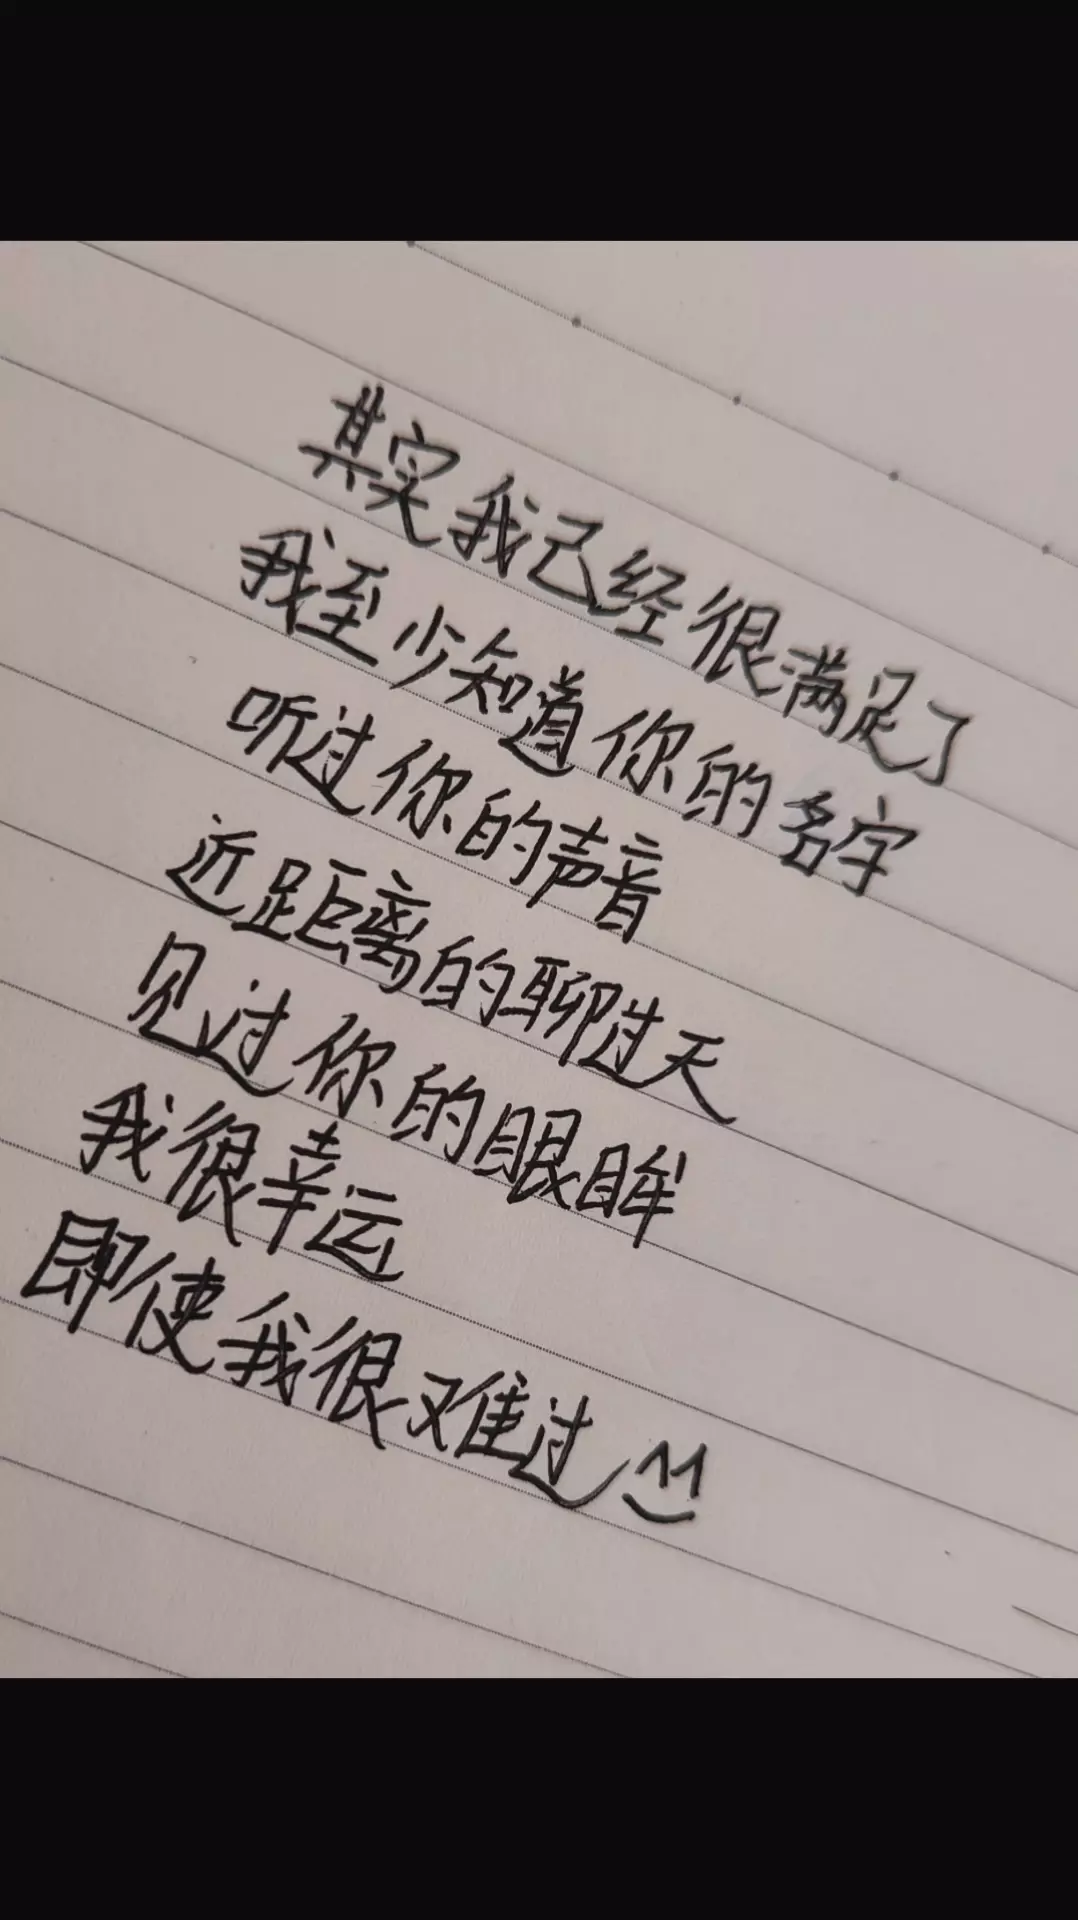 其实我已经很满足了
我至少知道你的名字
听过你的声音
近距离的聊过天
见过你的眼眸
我很幸运
即使我很难过